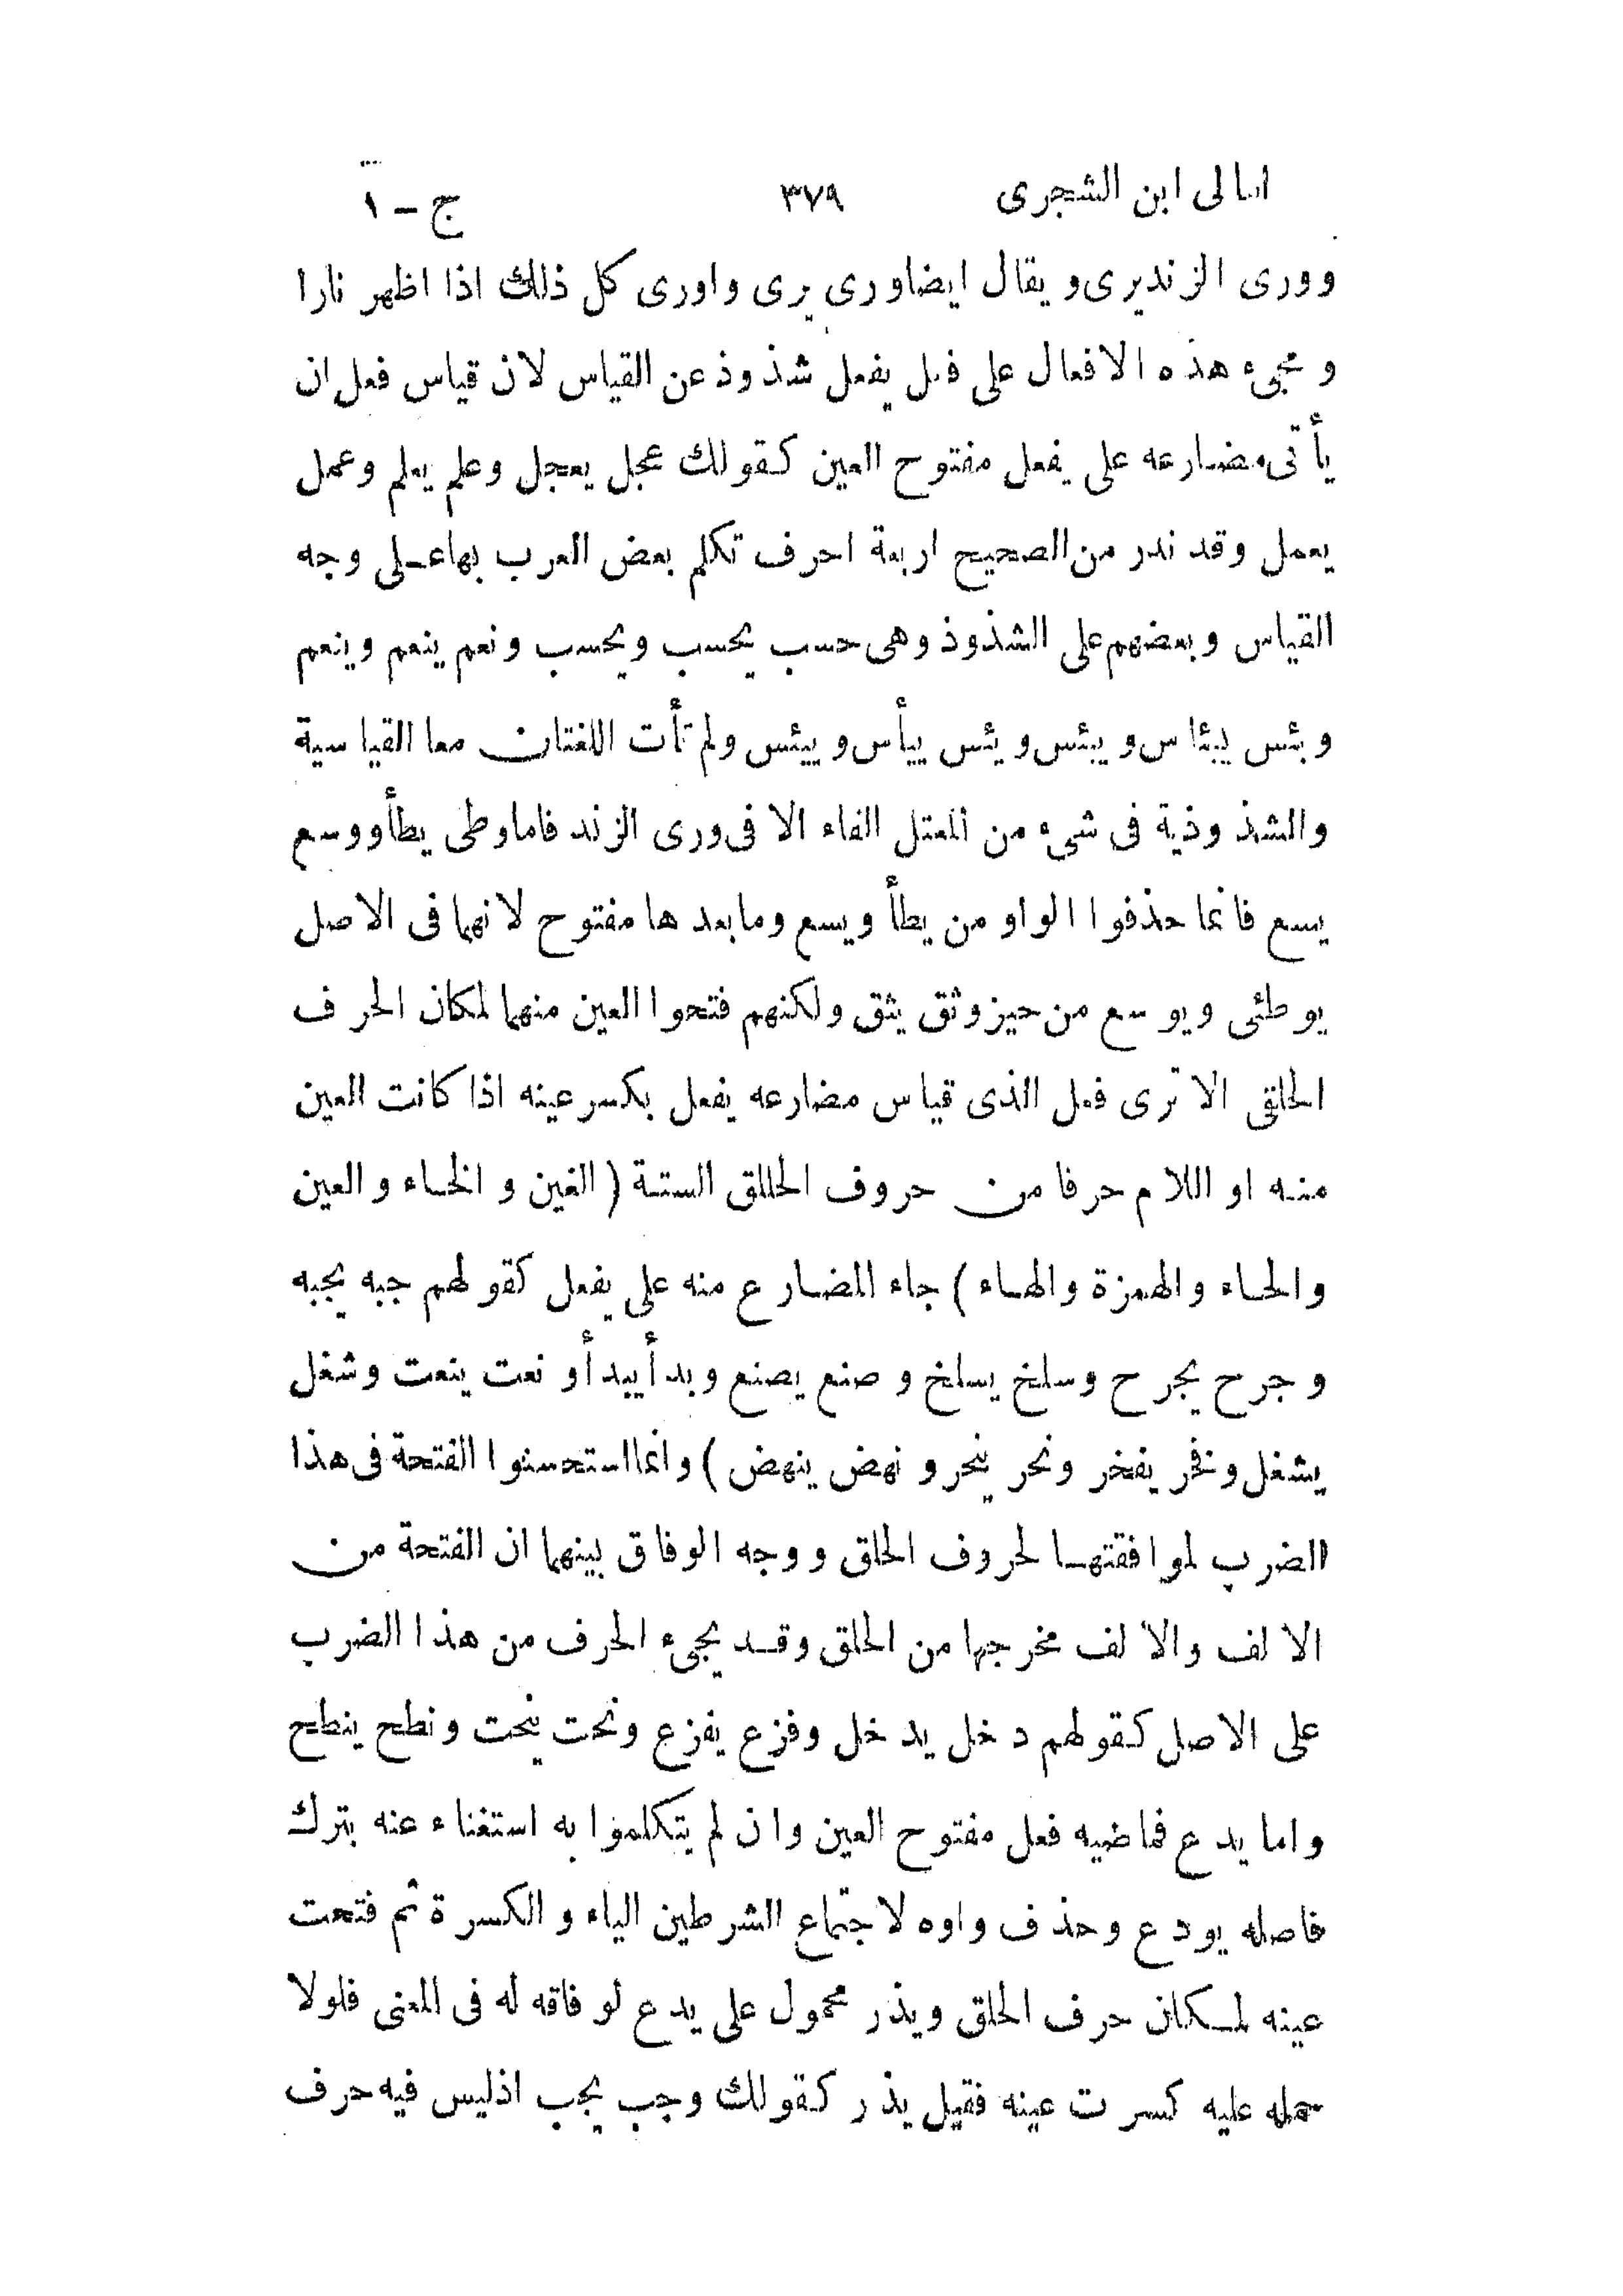 امالى ابن الشجرى ٣٧٩ ج - ١
وورى الزنديرى ويقال ايضاورى يرى واورى كل ذلك اذا اظهر نارا
ومجىء هذه الافعال على فعل يفعل شذوذ عن القياس لان قياس فعل ان
يأتى مضارعه على يفعل مفتوح العين كقولك عجل يعجل وعلم يعلم وعمل
يعمل وقد ندر من الصحيح اربعة احرف تكلم بعض العرب بها على وجه
القياس وبعضهم على الشذوذ وهى حسب يحسب ويحسب ونعم ينعم وينعم
وبئس يبئاس ويبئس ويئس ييأس وييئس ولم تأت اللغتان معا القياسية
والشذوذية فى شىء من المعتل الفاء الا فى ورى الزند فاما وطى يطأ ووسع
يسع فانما حذفوا الواو من يطأ ويسع وما بعدها مفتوح لانهما فى الاصل
يوطئى ويوسع من حيز وثق يثق ولكنهم فتحوا العين منهما لمكان الحرف
الحلقى الا ترى فعل الذى قياس مضارعه يفعل بكسر عينه اذا كانت العين
منه او اللام حرفا من حروف الحللق الستة ( الغين والخاء والعين
والحاء والهمزة والهاء ) جاء المضارع منه على يفعل كقولهم جبه يجبه
وجرح يجرح وسلخ يسلخ وصنع يصنع وبدأ يبدأ ونعت ينعت وشغل
يشغل وفخر يفخر ونحر ينحر ونهض ينهض ) وانما استحسنوا الفتحة فى هذا
الضرب لموافقتها لحروف الحلق ووجه الوفاق بينهما ان الفتحة من
الالف والالف مخرجها من الحلق وقد يجىء الحرف من هذا الضرب
على الاصل كقولهم دخل يدخل وفزع يفزع ونحت ينحت ونطح ينطح
واما يدع فماضيه فعل مفتوح العين وان لم يتكلموا به استغناء عنه بترك
فاصله يودع وحذف واوه لاجتماع الشرطين الياء والكسرة ثم فتحت
عينه لمكان حرف الحلق ويذر محمول على يدع لوفاقه له فى المعنى فلولا
حمله عليه كسرت عينه فقيل يذر كقولك وجب يجب اذليس فيه حرف